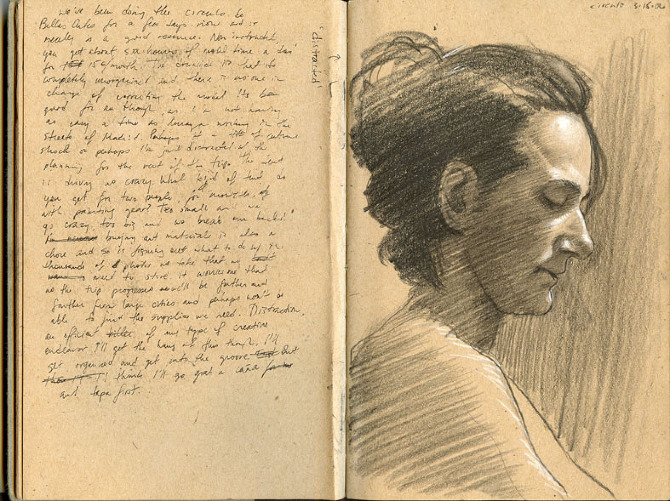 We've been doing the circulo de
Bellas Artes for a few days now and it
really is a good resource. Non instructed,
you get about six hours of model time a day
for 15€/month. The
completely unorganized and there is no one in
charge of correcting the model. Its been
good for me though, as I'm not having
as easy a time as being a working in the
streets of Madrid. Perhaps it is a bit of culture
shock or perhaps I'm just distracted at the
planning for the rest of the trip. The tent
is driving us crazy. What kind of tent do
you get for two people, for months of
with painting gear? Too small and we
go crazy, too big and we break our backs!
buying art materials is also a
chore and so is figuring out what to do w/ the
thousands of photos we take that we
need to store. It worries me that
as the trip progresses we'll be farther and
farther from large cities and perhaps won't be
able to find the supplies we need. Distraction,
an efficient killer of any type of creative
endeavor. I'll get the hang of this though. I'll
get organized and get into the groove. But
I think I'll go grab a caña
and tapa first.
"distraido"
circulo 3·18·06